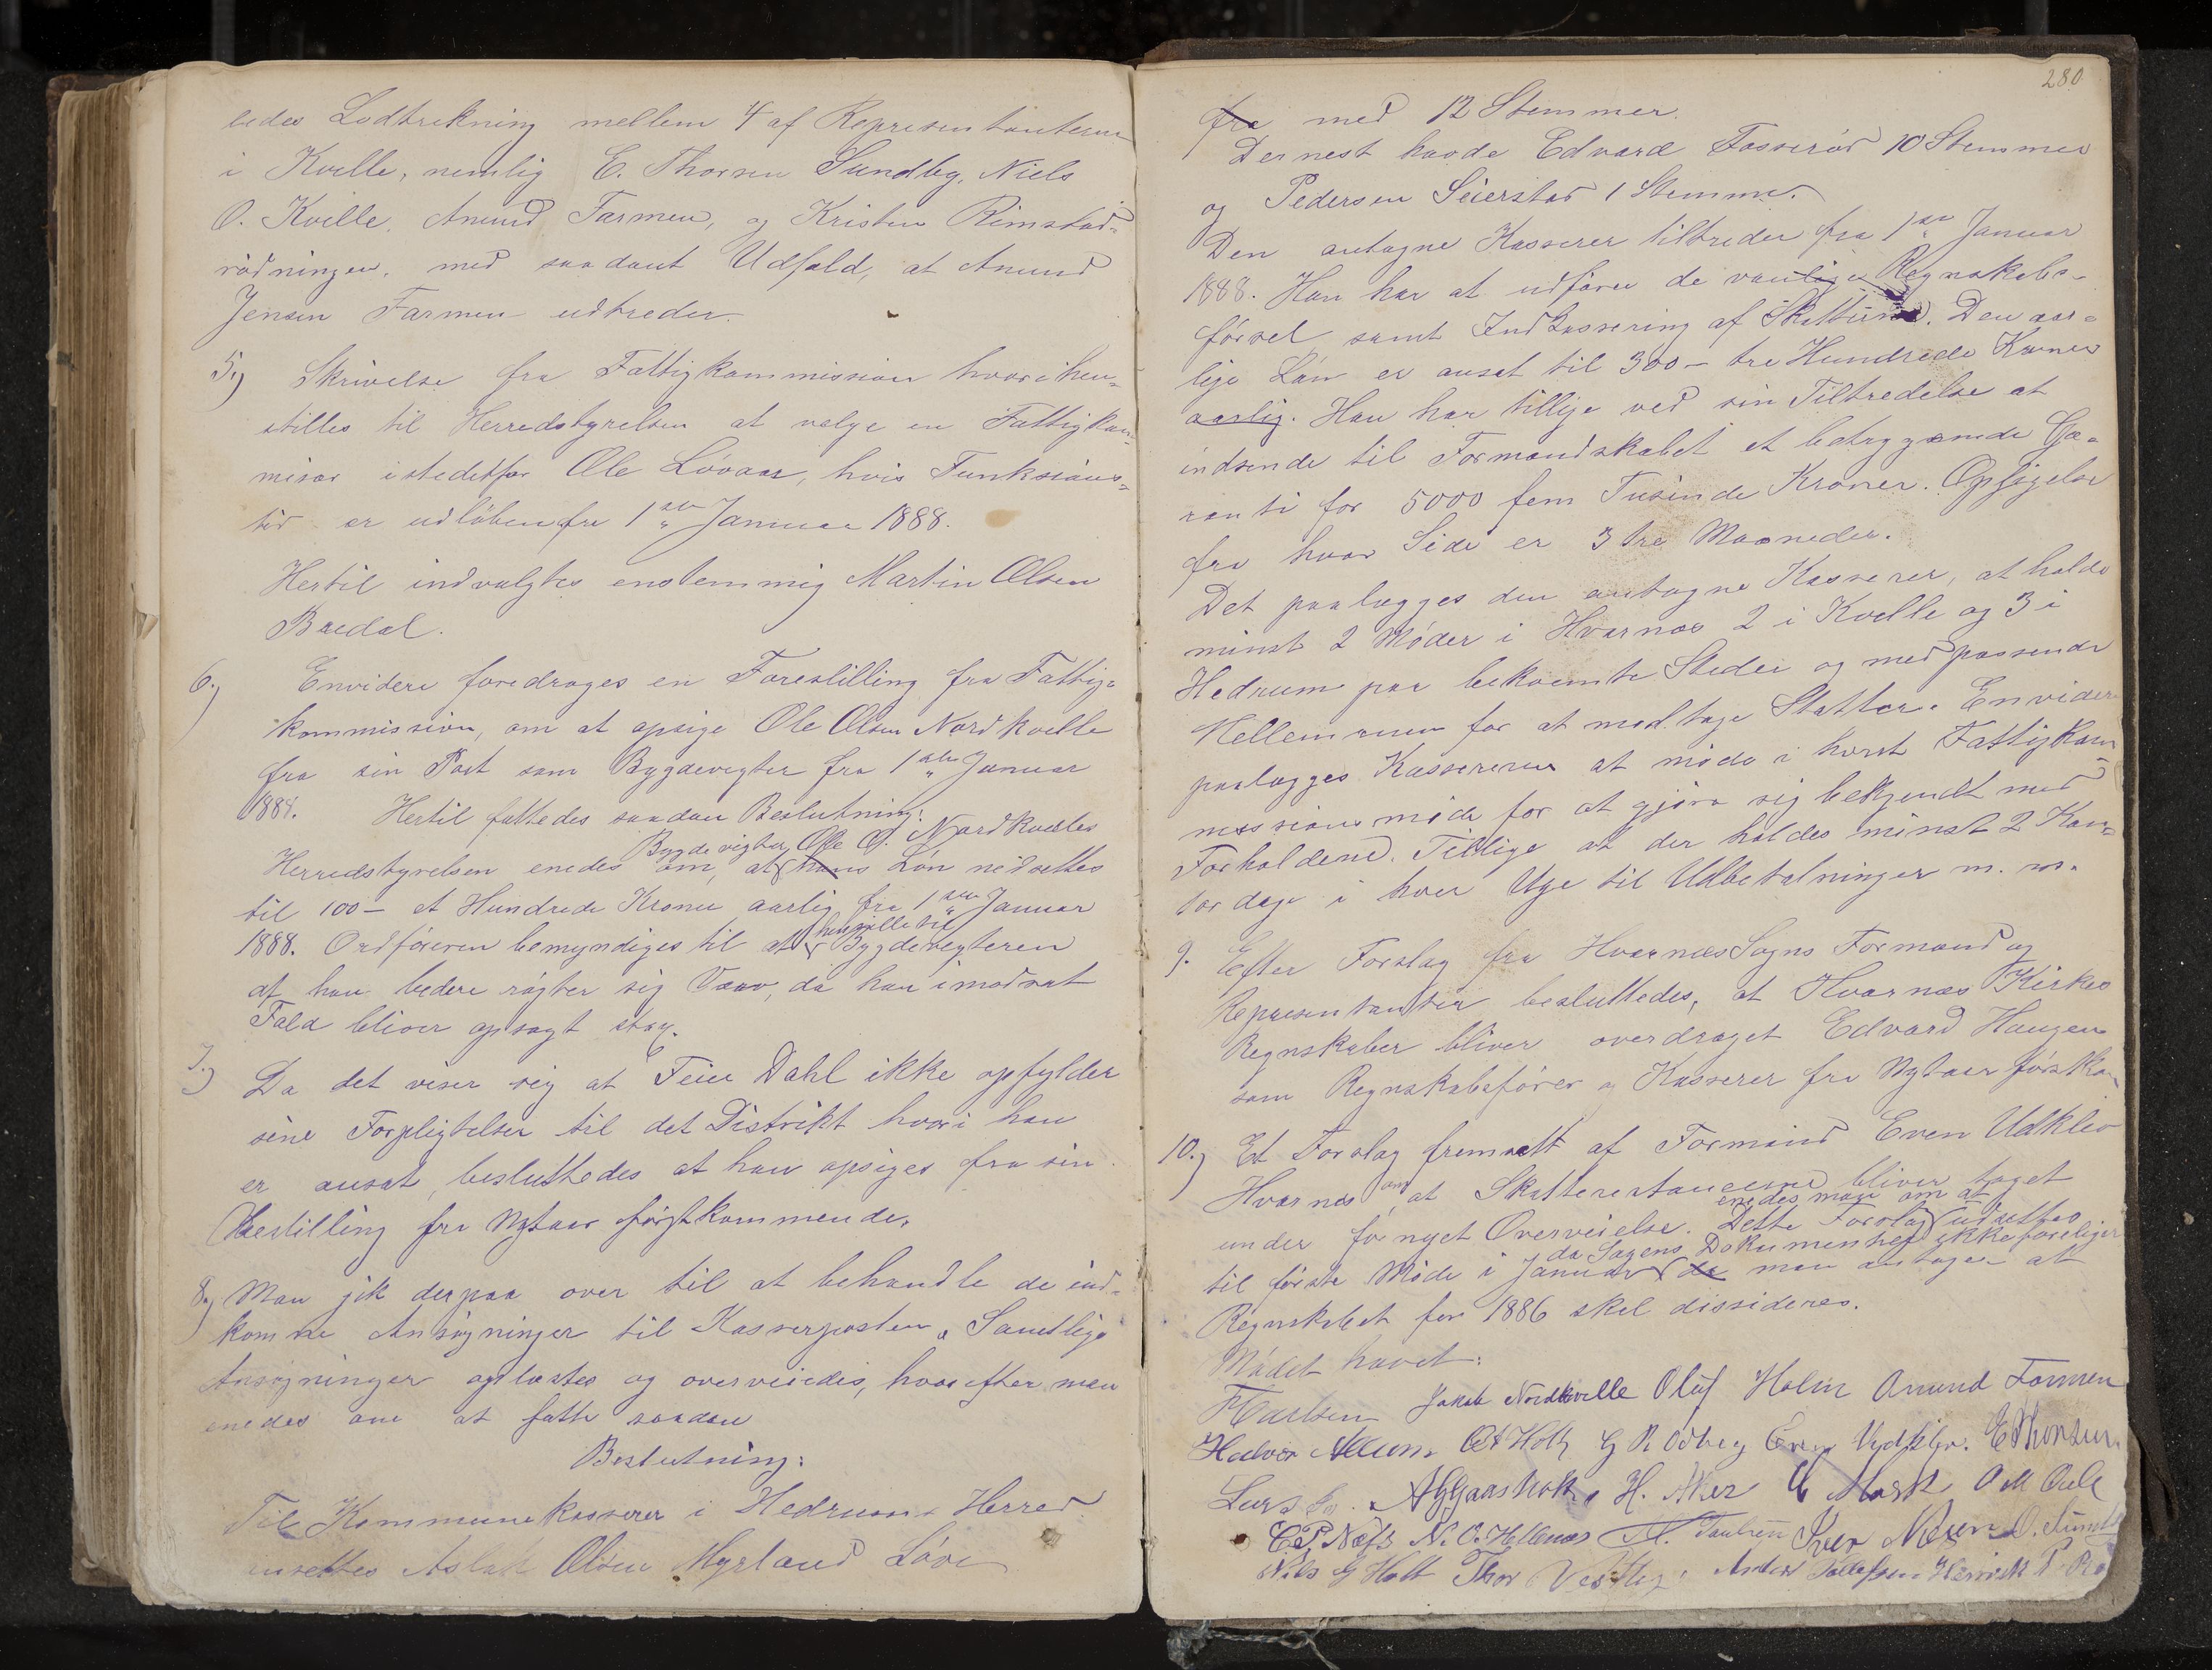 ledes Lodtrekning mellem 4 af Representanterne
i Kvelle, nemlig E. Thorsen Sundby, Niels
O. Kvelle, Amund Farmen, og Kristen Rimstad-
rødningen, med saadant Udfald, at Amund
Jensen Farmen udtreder.
5.) Skrivelse fra Fattigkommission hvori hen-
stilles til Herredstyrelsen at velge en Fattigkom-
misær istedetfor Ole Løvaas, hvis Funksions-
tid er udløben fra 1ste Januar 1888.
Hertil indvalgtes enstemmig Martin Olsen
Bredal.
6.) Envidere foredroges en Forestilling fra Fattig-
kommission, om at opsige Ole Olsen Nordkvelle
fra sin Post som Bygdevegter fra 1ste Januar
1888. Hertil fattedes saadan Beslutning:
Bygdevegter Ole O. Nordkvelles
Herredstyrelsen enedes om, at hans Løn nedsettes
til 100 – et Hundrede Kroner aarlig fra 1ste Januar
henstille til
1888. Ordføreren bemyndiges til at Bygdevegteren
at han bedere røgter sig Tarv, da han imodsat
Fald bliver opsagt strax.
7.) Da det viser sig at Feier Dahl ikke opfylder
sine Forpligtelser til det Distrikt hvori han
er ansat, besluttedes at han opsiges fra sin
Bestilling fra Nytaar førstkommende.
8.) Man gik derpaa over til at behandle de ind-
komne Ansøgninger til Kasserposten. Samtlige
Ansøgninger oplæstes og overveiedes, hvorefter man
enedes om at fatte saadan
Beslutning:
Til Kommunekasserer i Hedrum Herred
ansettes Aslak Olsen Myrland Løve
280
fra med 12 Stemmer.
Dernest havde Edvard Fosserød 10 Stemmer
og Pedersen Seierstad 1 Stemme.
Den antagne Kasserer tiltreder fra 1ste Januar
1888. Han har at udføre de vanlige Regnskabs-
førsel samt Indkassering af Skatterne. Den aar-
lige Løn er ansat til 300 – tre Hundrede Kroner
aarlig. Han har tillige ved sin Tiltredelse at
indsende til Formandskabet et betryggende Ga-
ranti for 5000 fem Tusinde Kroner. Opsigelse
fra hver Side er 3 tre Maaneder.
Det paalægges den antagne Kasserer, at holde
minst 2 Møder i Hvarnes 2 i Kvelle og 3 i
Hedrum paa bekvemte Steder og med passende
Mellemrum for at modtage Skatter. Envidere
paalægges Kassereren at møde i hvert Fattigkom-
missionsmøde for at gjøre sig bekjendt med
Forholdene. Tillige at der holdes minst 2 Kon-
tordage i hver Uge til Udbetalninger m. m.
9. Efter Forslag fra Hvarnes Sogns Formænd og
Representanter besluttedes, at Hvarnes Kirkes
Regnskaber bliver overdraget Edvard Haugen
som Regnskabsfører og Kasserer fra Nytaar førstkom
10.) Et Forslag fremsatt af Formand Even Udklev
Hvarnes om at Skatterestancerne bliver taget
enedes man om at
under fornyet Overveielse. Dette Forslag udsettes
da Sagens Dokumenter ikke foreligger
til første Møde i Januar da man antager at
Regnskabet for 1886 skal dissideres.
Mødet hævet:
FCarlsen Jakob Nordkvelle Oluf Holm Amund Farmen
Halvor Allum Even Vydklev. EThorsen.
Lars H. Aker Mørk
C.P. Næss N. O. Hellenæs A. Paulsen Iver O. Sundb
Nils G Holt Thor Vestby Anders Tollefsen Henrik P.